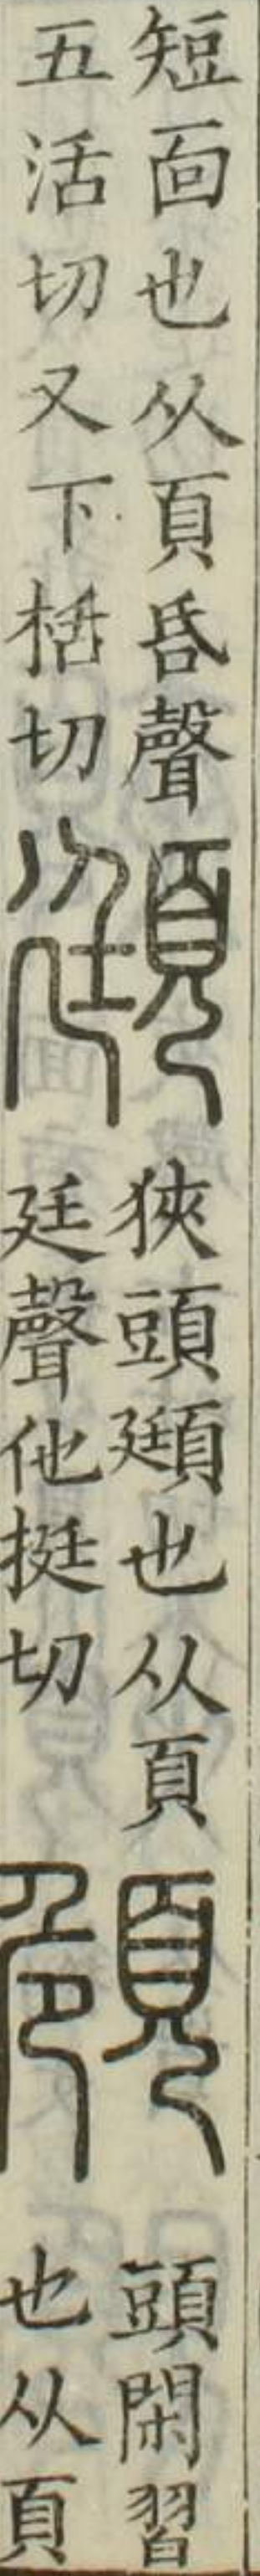 短面也从頁昏聲
五活切又下括切
頲
狹頭頲也从頁
廷聲他挺切
頠
頭閑習
也从頁